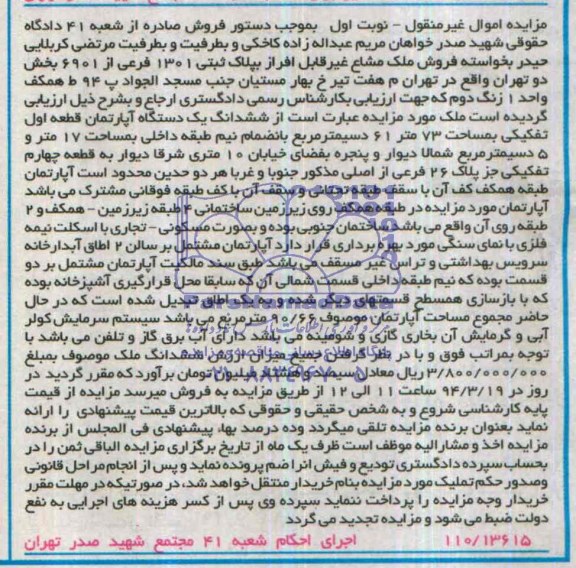 مزایده اموال غیرمنقول - نوبت اول بموجب دستور فروش صادره از شعبه ۴۱ دادگاه
حقوقی شهید صدر خواهان مریم عبداله زاده کاخکی و بطرفیت و بطرفیت مرتضی کربلایی
حیدر بخواسته فروش ملک مشاع غیرقابل افراز بپلاک ثبتی ۱۳۰۱ فرعی از ۶۹۰۱ بخش
دو تهران واقع در تهران م هفت تیر خ بهار مستیان جنب مسجد الجواد پ ۹۴ ط همکف
واحد ۱ زنگ دوم که جهت ارزیابی بکارشناس رسمی دادگستری ارجاع و بشرح ذیل ارزیابی
گردیده است ملک مورد مزایده عبارت است از ششدانگ یک دستگاه آپارتمان قطعه اول
تفکیکی بمساحت ۷۳ متر ۶۱ دسیمترمربع بانضمام نیم طبقه داخلی بمساحت ۱۷ متر و
۵ دسیمترمربع شمالا دیوار و پنجره بفضای خیابان ۱۰ متری شرقا دیوار به قطعه چهارم
تفکیکی جز پلاک ۲۶ فرعی از اصلی مذکور جنوبا و غربا هر دو حدین محدود است آپارتمان
طبقه همکف کف آن با سقف طبقه تحتانی و سقف آن با کف طبقه فوقانی مشترک می باشد
آپارتمان مورد مزایده در طبقه همکف روی زیرزمین ساختمانی ۴ طبقه زیرزمین - همکف و ۲
طبقه روی آن واقع می باشد ساختمان جنوبی بوده و بصورت مسکونی - تجاری با اسکلت نیمه
فلزی با نمای سنگی مورد بهره برداری قرار دارد آپارتمان مشتمل بر سالن ۲ اطاق آبدارخانه
سرویس بهداشتی و تراس غیر مسقف می باشد طبق سند مالکیت آپارتمان مشتمل بر دو
قسمت بوده که نیم طبقه داخلی قسمت شمالی آن که سابقا محل قرارگیری آشپزخانه بوده
که با بازسازی همسطح قسمتهای دیگر شده و به یک اطاق تبدیل شده است که در حال
حاضر مجموع مساحت آپارتمان موصوف ۹۰/۶۶ مترمربع می باشد سیستم سرمایش کولر
آبی و گرمایش آن بخاری گازی و شومینه می باشد دارای آب برق گاز و تلفن می باشد با
توجه بمراتب فوق و با در نظر گرفتن جمیع میزان ارزش ششدانگ ملک موصوف بمبلغ
۳/۸۰۰/۰۰۰/۰۰۰ ریال معادل سیصد و هشتاد میلیون تومان برآورد که مقرر گردید در
روز در ۹۴/۳/۱۹ ساعت ۱۱ الی ۱۲ از طریق مزایده به فروش میرسد مزایده از قیمت
پایه کارشناسی شروع و به شخص حقیقی و حقوقی که بالاترین قیمت پیشنهادی را ارائه
نماید بعنوان برنده مزایده تلقی میگردد وده درصد بها، پیشنهادی فی المجلس از برنده
مزایده اخذ و مشارالیه موظف است ظرف یک ماه از تاریخ برگزاری مزایده الباقی ثمن را در
بحساب سپرده دادگستری تودیع و فیش انرا ضم پرونده نماید و پس از انجام مراحل قانونی
وصدور حکم تملیک مورد مزایده بنام خریدار منتقل خواهد شد، در صورتیکه در مهلت مقرر
خریدار وجه مزایده را پرداخت ننماید سپرده وی پس از کسر هزینه های اجرایی به نفع
دولت ضبط می شود و مزایده تجدید می گردد
۱۱۰/۱۳۶۱۵ اجرای احکام شعبه ۴۱ مجتمع شهید صدر تهران